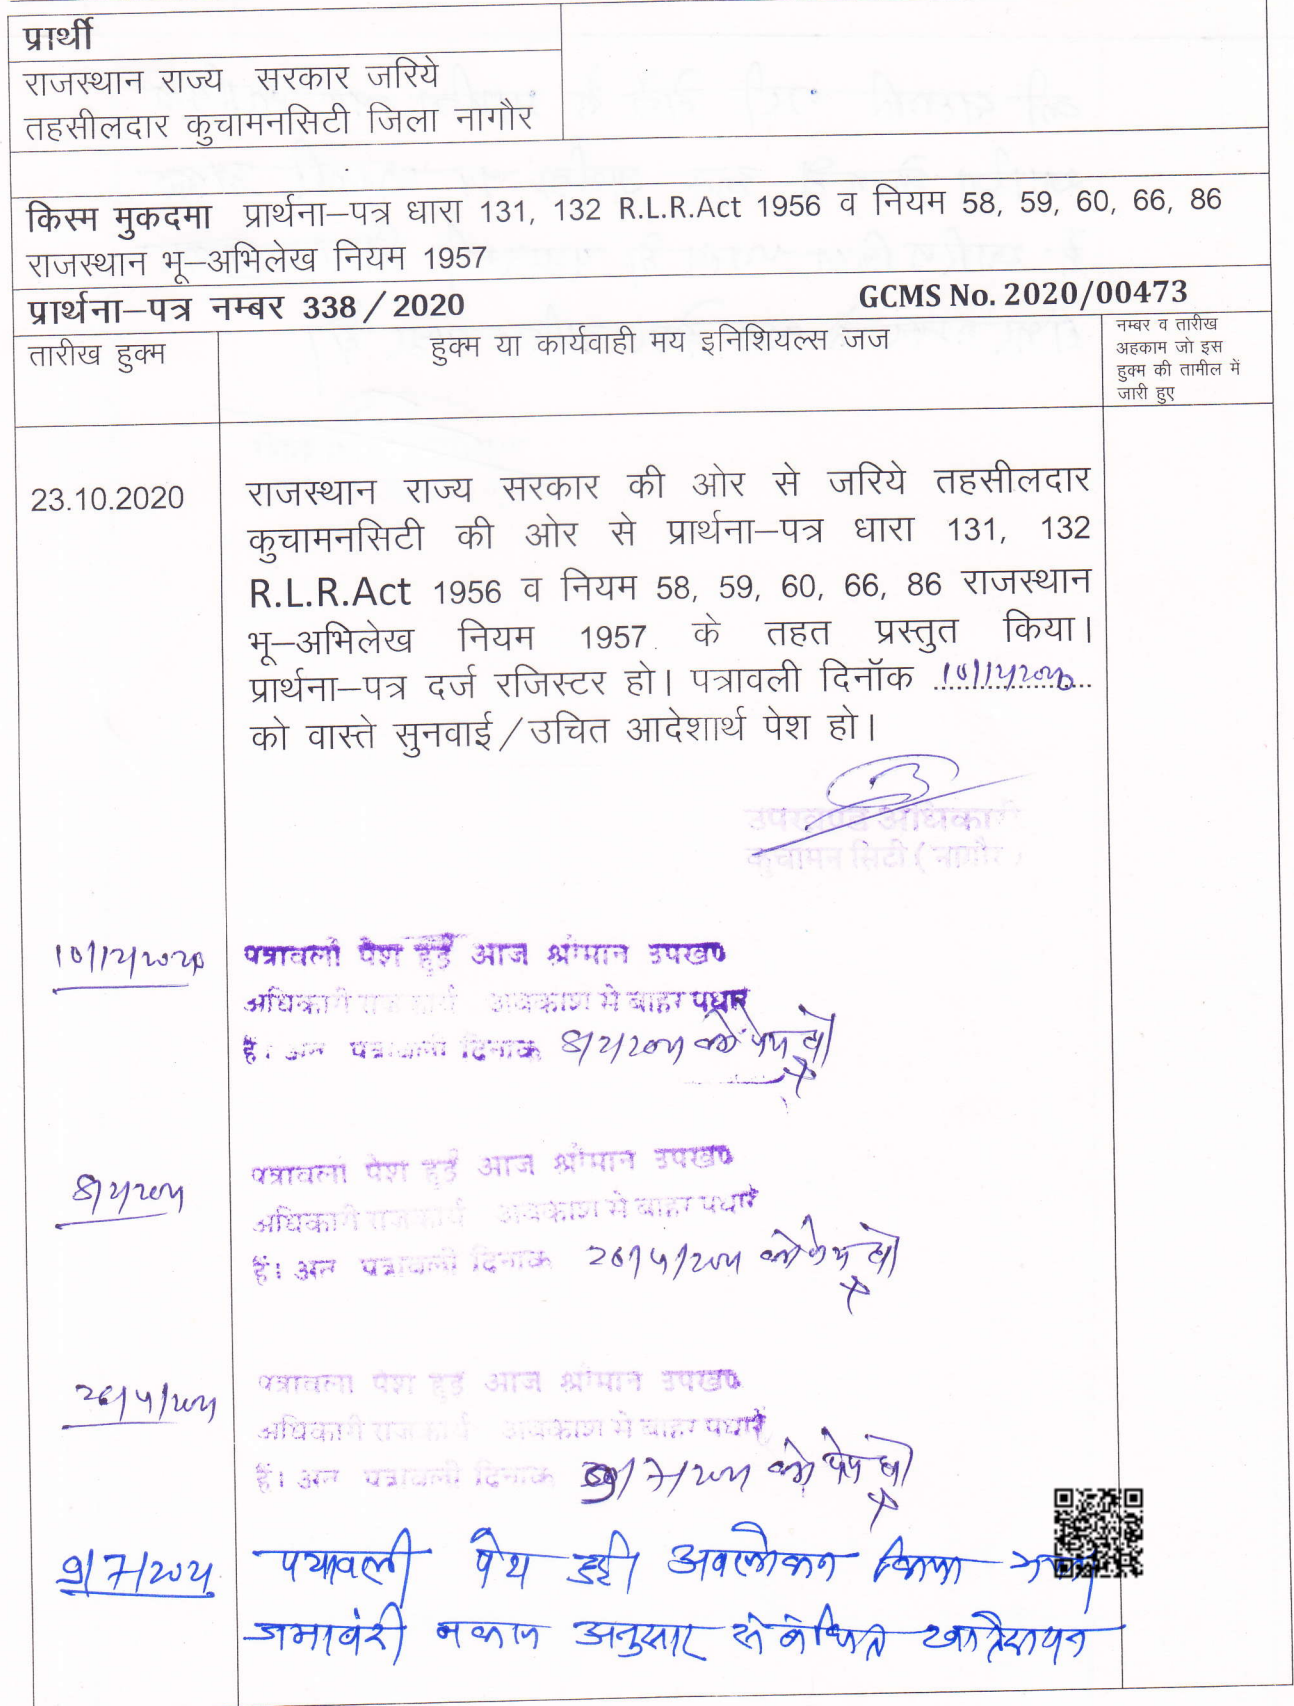 प्रार्थी
राजस्थान राज्य सरकार जरिये
तहसीलदार कुचामनसिटी जिला नागौर
किस्म मुकदमा प्रार्थना–पत्र धारा 131, 132 R.L.R.Act 1956 व नियम 58, 59, 60, 66, 86
राजस्थान भू–अभिलेख नियम 1957
प्रार्थना–पत्र नम्बर 338 / 2020 GCMS No. 2020/00473
तारीख हुक्म
हुक्म या कार्यवाही मय इनिशियल्स जज
नम्बर व तारीख
अहकाम जो इस
हुक्म की तामील में
जारी हुए
23.10.2020
राजस्थान राज्य सरकार की ओर से जरिये तहसीलदार
कुचामनसिटी की ओर से प्रार्थना–पत्र धारा 131, 132
R.L.R.Act 1956 व नियम 58, 59, 60, 66, 86 राजस्थान
भू–अभिलेख नियम 1957 के तहत प्रस्तुत किया।
प्रार्थना–पत्र दर्ज रजिस्टर हो। पत्रावली दिनॉक 10/12/2020
को वास्ते सुनवाई / उचित आदेशार्थ पेश हो।
उपखण्ड अधिकारी
कुचामन सिटी ( नागौर )
10/12/2020
पत्रावली पेश हुई आज श्रीमान उपखण्ड
अधिकारी राजकार्य अवकाश मे बाहर पधारे
हैं। अतः पत्रावली दिनांक 8/2/2021 को पेश हो
8/2/2021
पत्रावली पेश हुई आज श्रीमान उपखण्ड
अधिकारी राजकार्य अवकाश मे बाहर पधारे
हैं। अतः पत्रावली दिनांक 26/5/2021 को पेश हो
26/5/2021
पत्रावली पेश हुई आज श्रीमान उपखण्ड
अधिकारी राजकार्य अवकाश मे बाहर पधारे
हैं। अतः पत्रावली दिनांक 9/7/2021 को पेश हो
9/7/2021
पत्रावली पेश हुई अवलोकन किया गया
जमाबंदी नकल अनुसार संबंधित